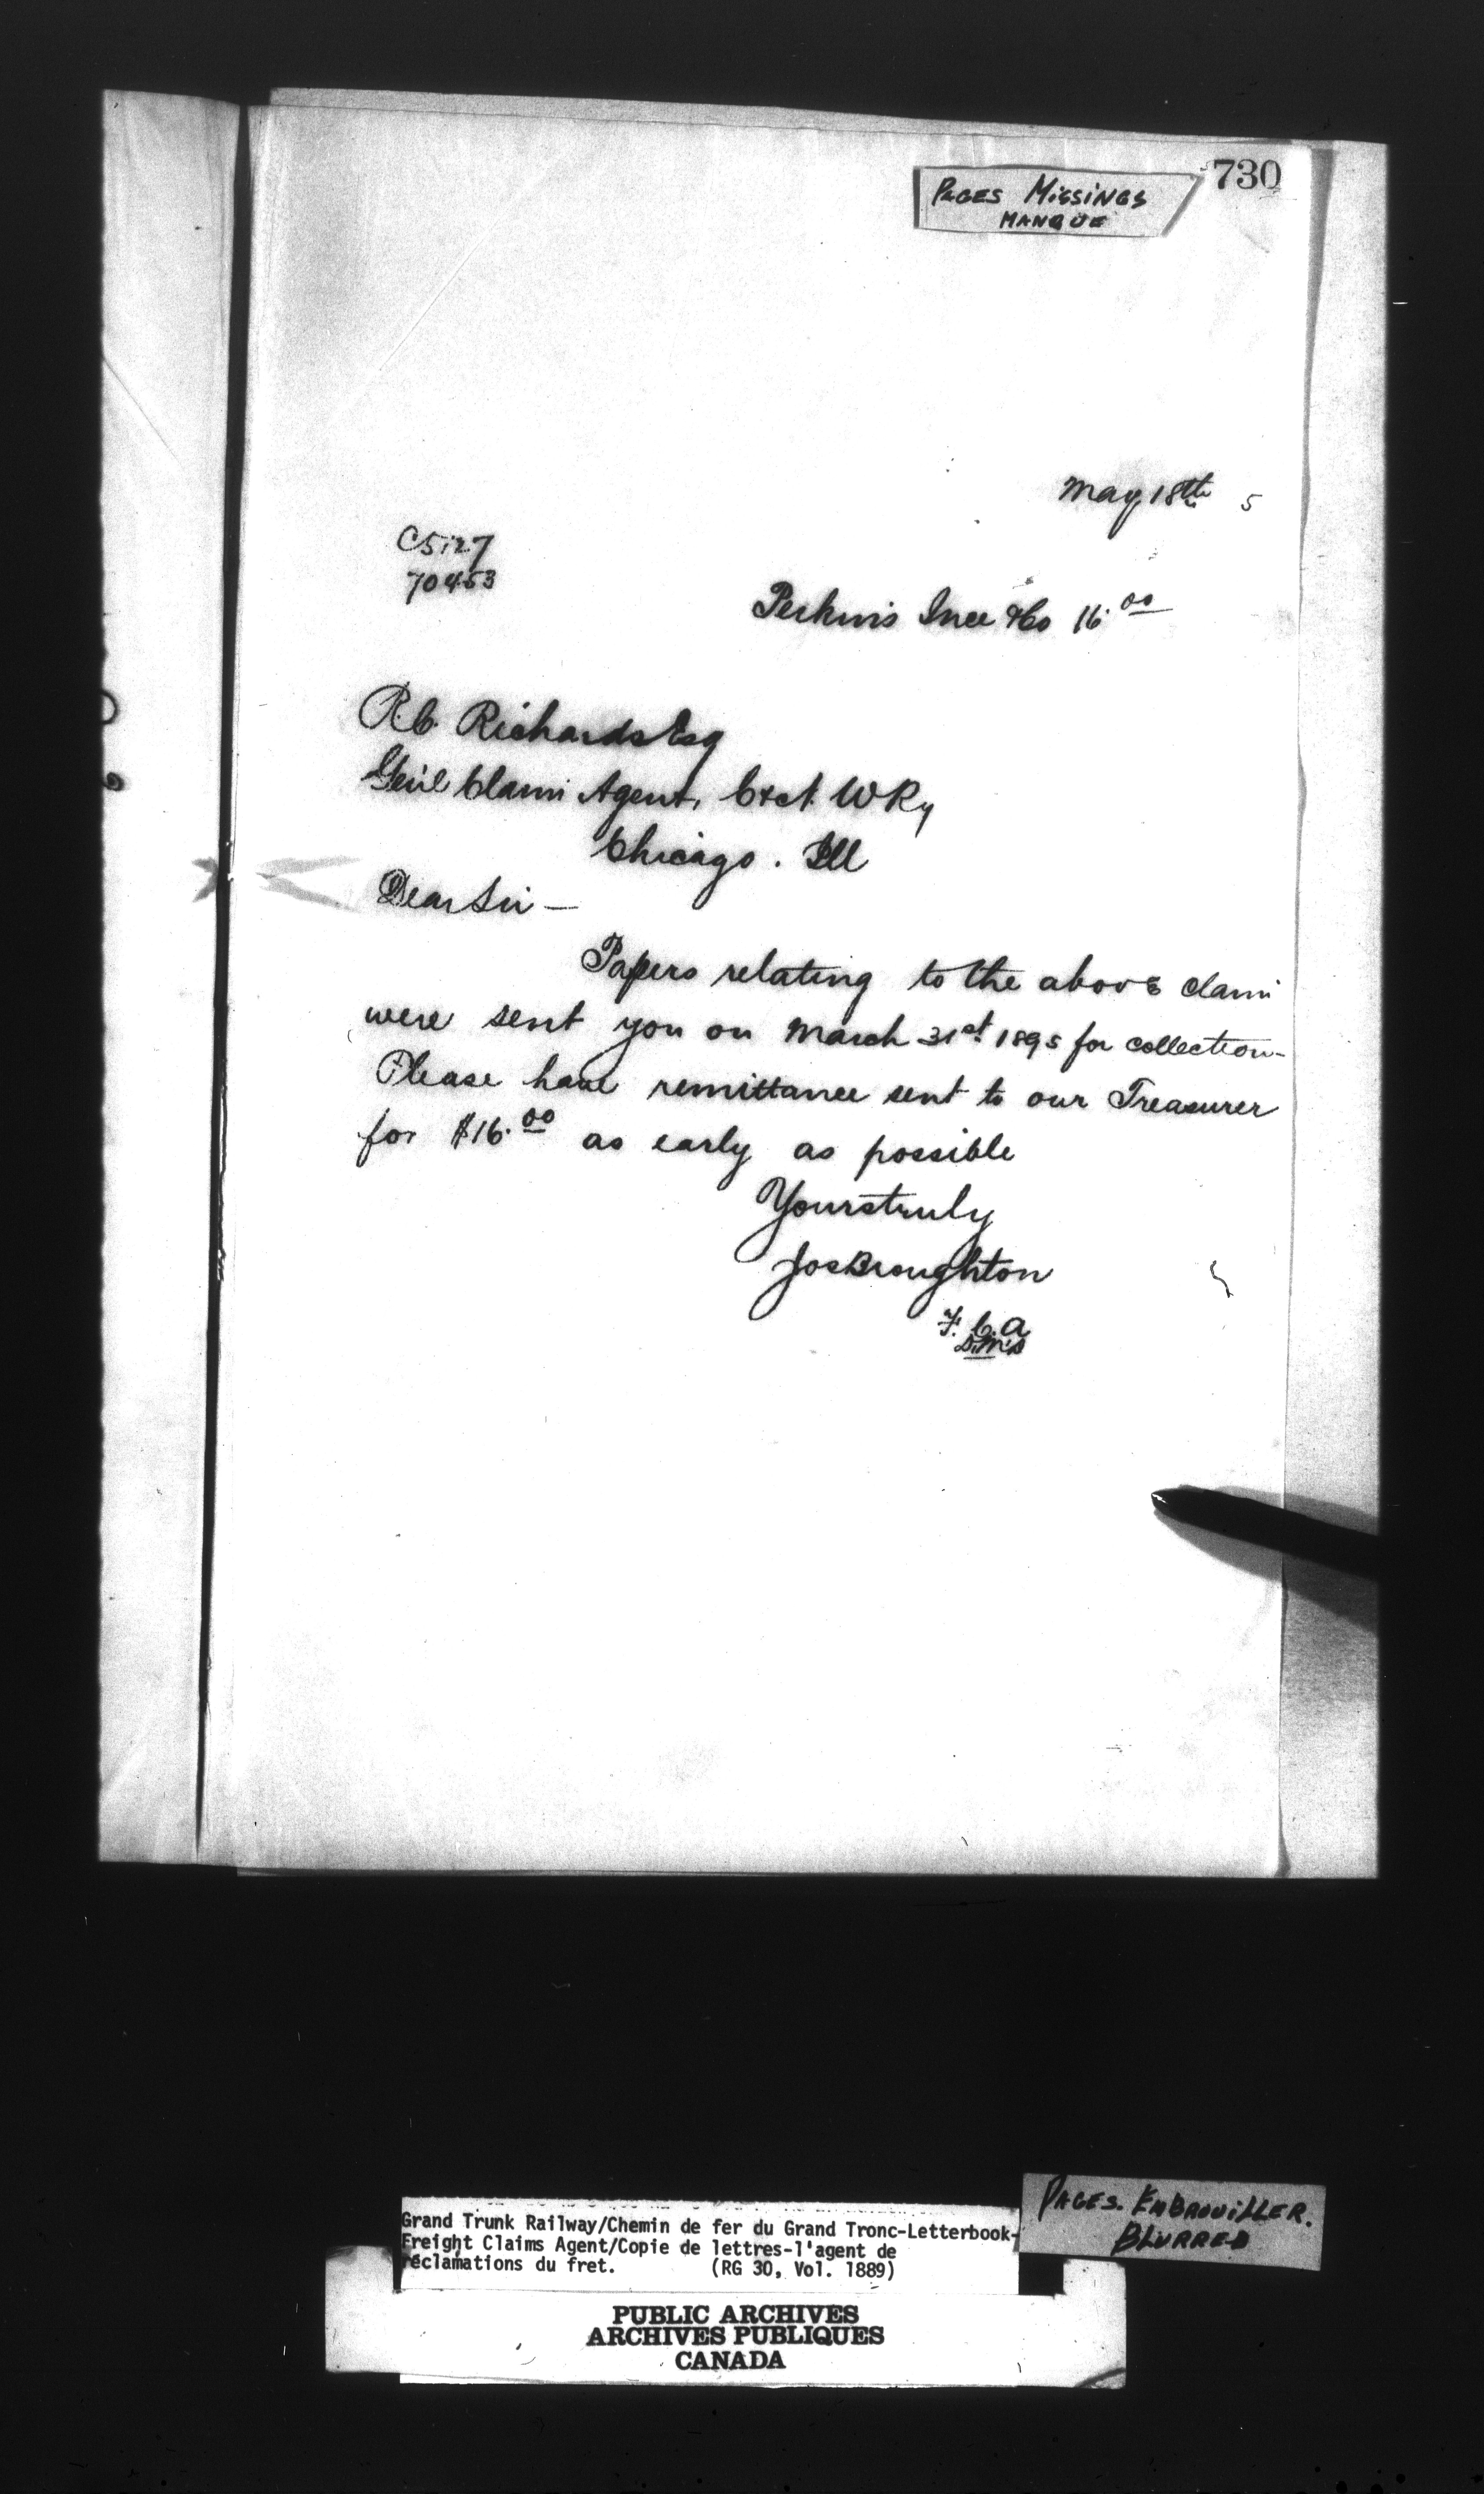 730
PAGES MISSINGS
MANQUE
May 18th 5
C5127
70453
Perkins Ince & Co 16.00
R.C. Richards Esq
Genl Claim Agent, C & N W Ry
Chicago. Ill
Dear Sir —
Papers relating to the above claim
were sent you on March 31st 1895 for collection-
Please have remittance sent to our Treasurer
for $16.00 as early as possible
Yours truly
Jos Broughton
F. C. A
PAGES. EMBROUILLER.
BLURRED
Grand Trunk Railway/Chemin de fer du Grand Tronc-Letterbook-
Freight Claims Agent/Copie de lettres-l'agent de
réclamations du fret. (RG 30, Vol. 1889)
PUBLIC ARCHIVES
ARCHIVES PUBLIQUES
CANADA